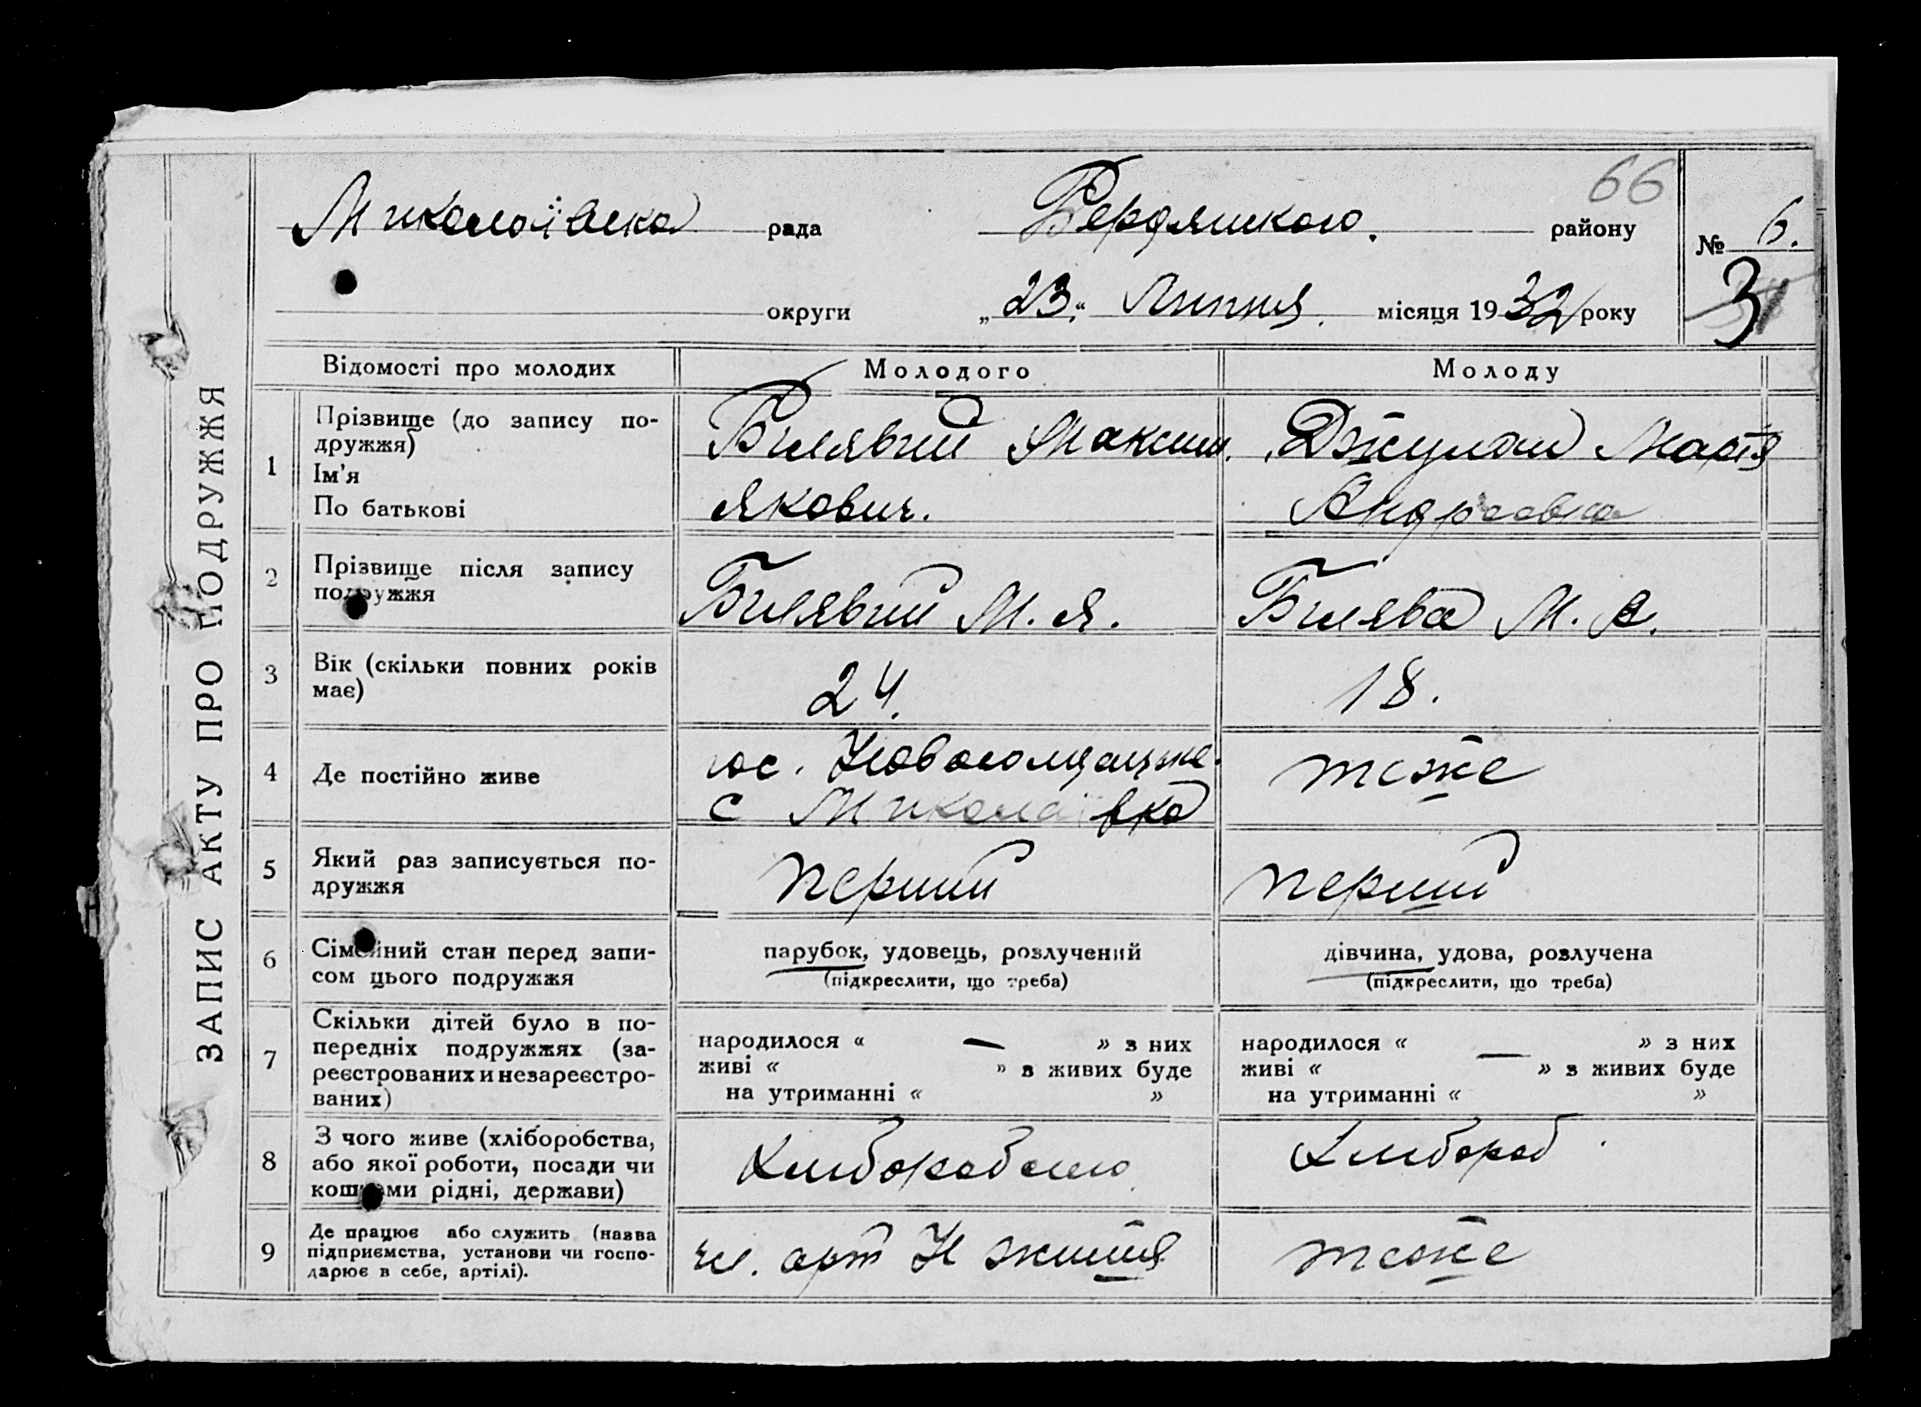 66
Миколоївска рада Бердянского. району № 6.
округи „23.“ Липня. місяця 1932 року 31
ЗАПИС АКТУ ПРО ПОДРУЖЖЯ
Відомості про молодих Молодого Молоду
1 Прізвище (до запису по-
дружжя)
Ім'я
По батькові
Билявий Максим
Якович.
Марія
Андріевна
2 Прізвище після запису
подружжя
Билявий М. Я.
Билява М. А.
3 Вік (скільки повних років
має)
24.
18.
4 Де постійно живе
с Миколаівка
тоже
5 Який раз записується по-
дружжя
перший
перший
6 Сімейний стан перед запи-
сом цього подружжя
парубок, удовець, розлучений
(підкреслити, що треба)
дівчина, удова, розлучена
(підкреслити, що треба)
7 Скільки дітей було в по-
передніх подружжях (за-
реєстрованих и незареєстро-
ваних)
народилося « — » з них
живі « » в живих буде
на утриманні « »
народилося « — » з них
живі « » в живих буде
на утриманні « »
8 З чого живе (хліборобства,
або якої роботи, посади чи
коштами рідні, держави)
Хлиборобство
Хлибороб
9 Де працює або служить (назва
підприємства, установи чи госпо-
дарює в себе, артілі).
чл. арт Н життя
тоже